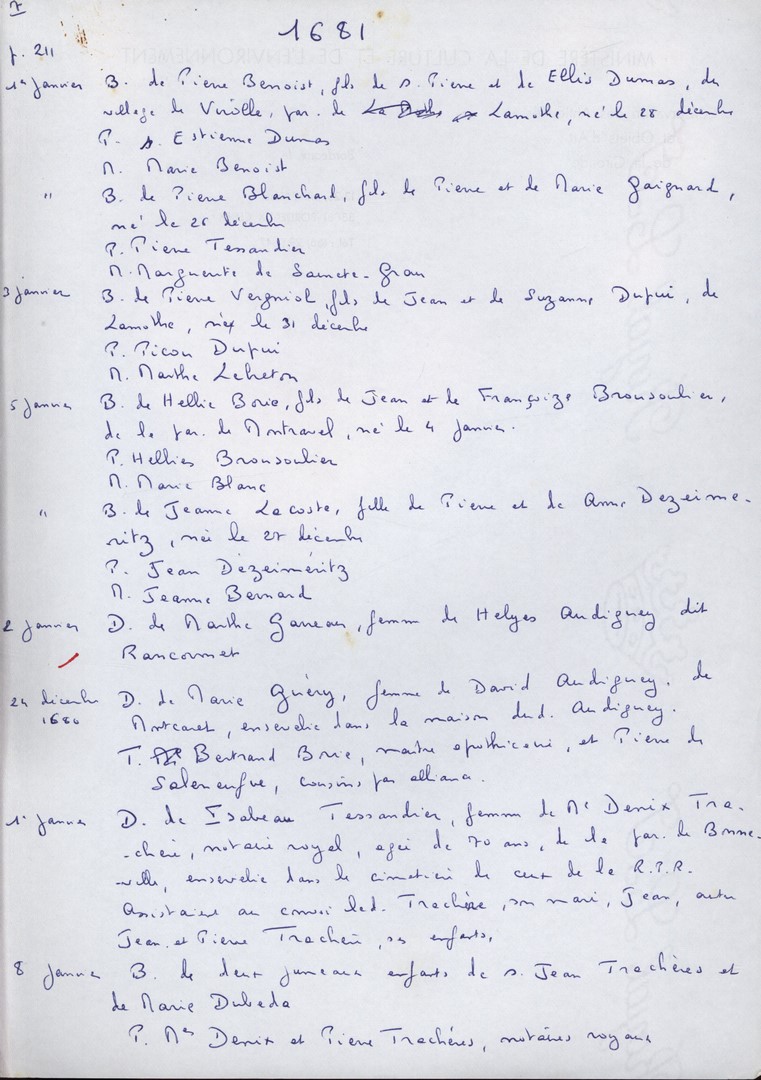 7
1681
f. 211
1er janvier B. de Pierre Benoist, fils de s. Pierre et de Ellis Dumas, du
village de Virolle, par. de Lamothe, né le 28 décembre
P. s. Estienne Dumas
M. Marie Benoist
" B. de Pierre Blanchard, fils de Pierre et de Marie Gaignard,
né le 26 décembre
P. Pierre Tessandier
M. Marguerite de Saincte-Grau
3 janvier B. de Pierre Vergniol, fils de Jean et de Suzanne Dupui, de
Lamothe, né le 31 décembre
P. Picou Dupui
M. Marthe Lebreton
5 janvier B. de Hellie Borie, fils de Jean et de Françoize Brousoulier,
de la par. de Montravel, né le 4 janvier.
P. Hellies Brousoulier
M. Marie Blanc
" B. de Jeanne Lacoste, fille de Pierre et de Anne Dezeime-
ritz, née le 27 décembre
P. Jean Dezeiméritz
M. Jeanne Bernard
2 janvier D. de Marthe Gaveau, femme de Helyes Audiguey dit
Rancournet
24 décembre D. de Marie Guéry, femme de David Audiguey, de
1680 Montcaret, ensevelie dans la maison dud. Audiguey.
T. Bertrand Brie, maitre apothicaire, et Pierre de
Saleneufve, cousins par alliance.
1er janvier D. de Isabeau Tessandier, femme de Me Denix Tra-
-chère, notaire royal, agée de 70 ans, de la par. de Bonne-
-ville, ensevelie dans le cimetière de ceux de la R.P.R.
Assistaient au convoi led. Trachère, son mari, Jean, autre
Jean et Pierre Trachère, ses enfants,
8 janvier B. de deux jumeaux enfants de s. Jean Trachères et
de Marie Dubeda
P. Mes Denix et Pierre Trachères, notaires royaux